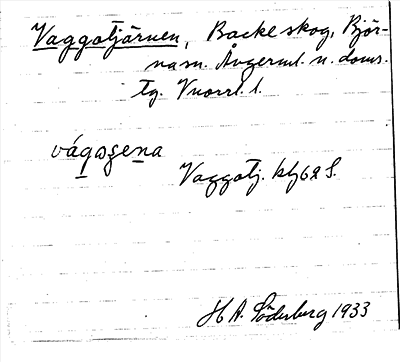 Vaggotjärnen, Backe skog, Björ-
na sn. Ångerml. n. doms.
tg.
vágωʒena
Vaggotj. kbl 62 S.
H A. Söderberg 1933